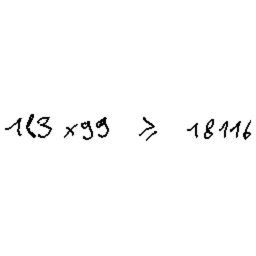 1(3 ×99 ≥ 18116